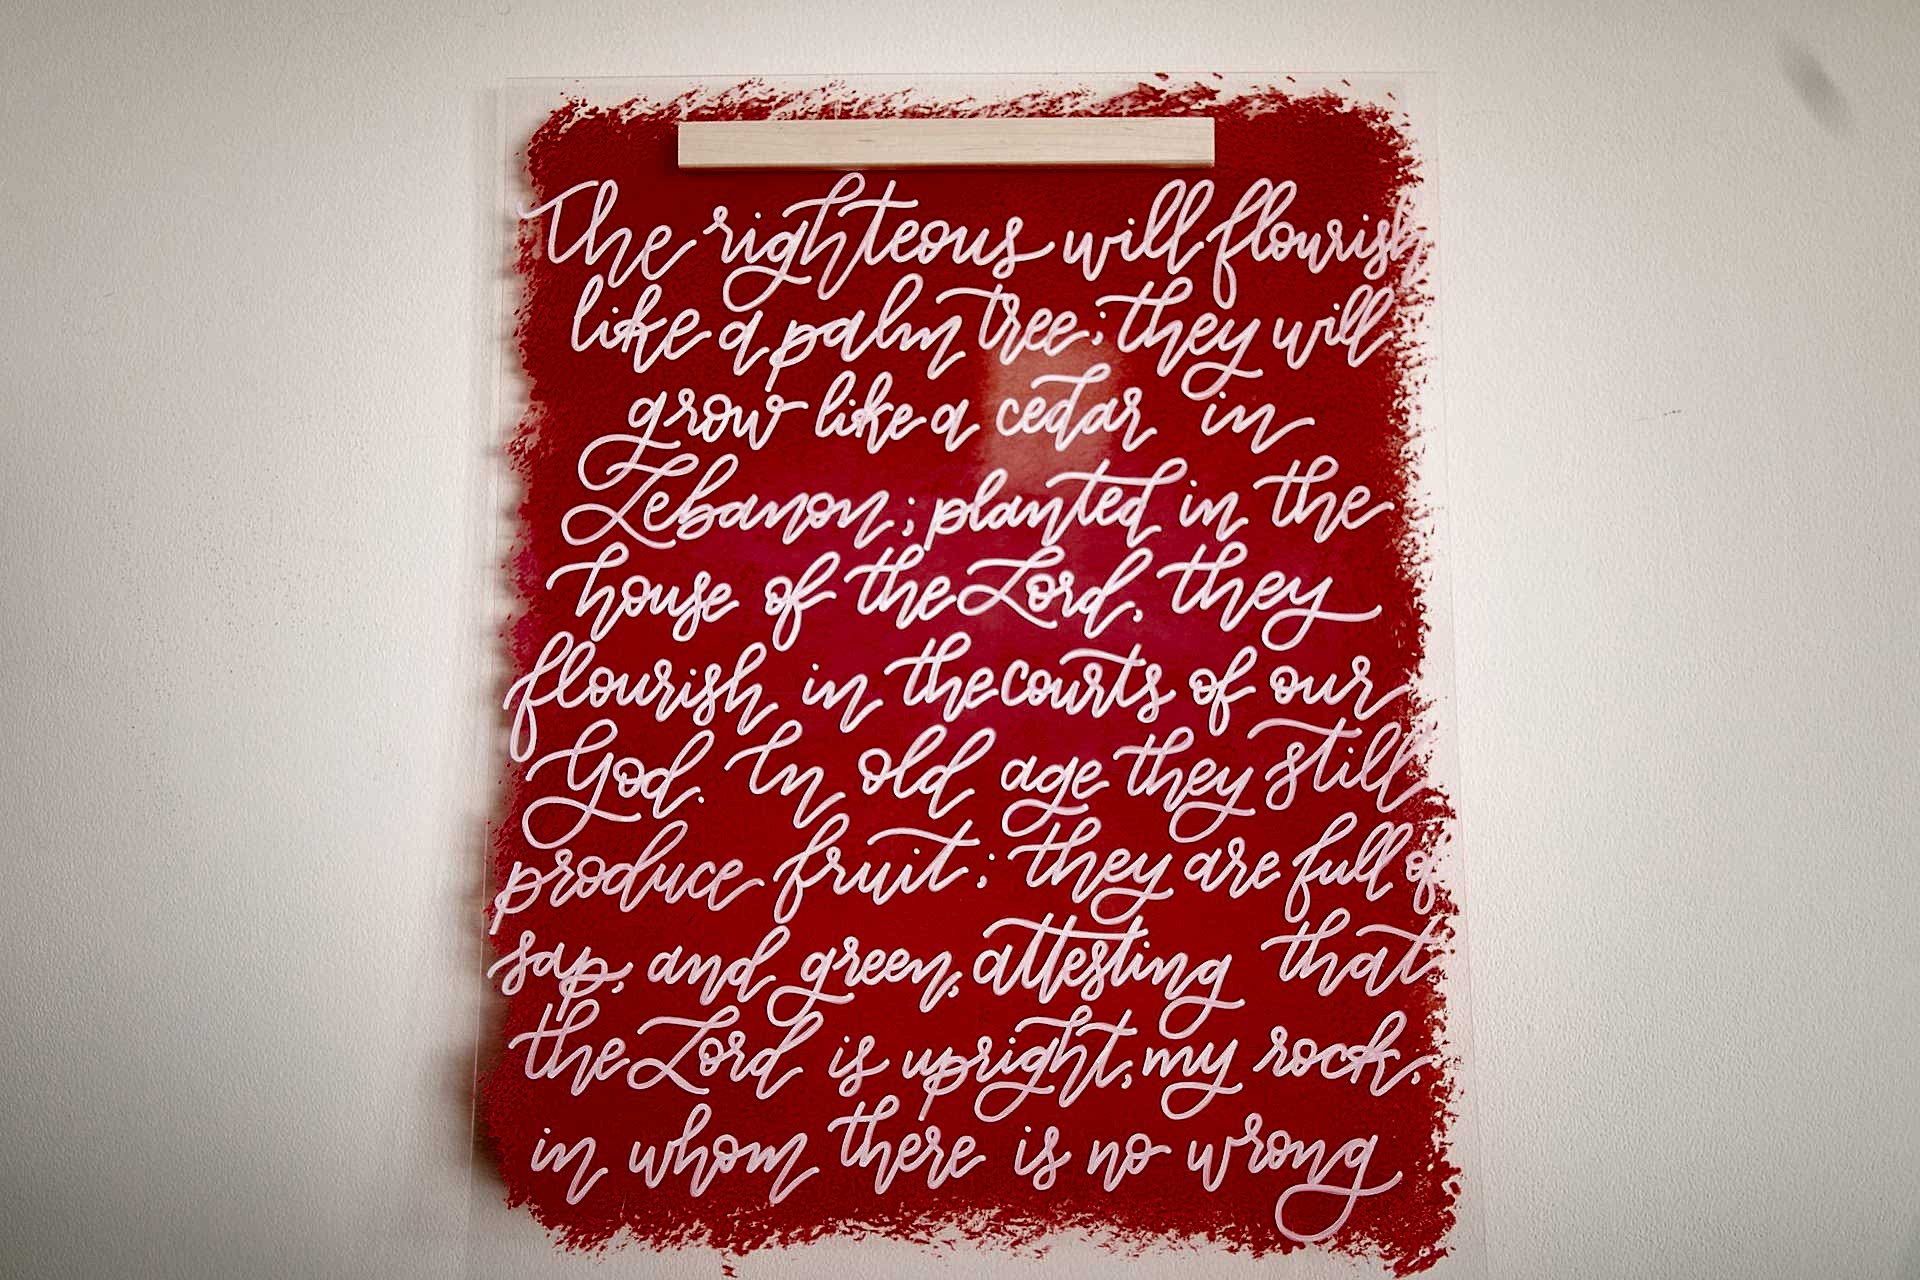 The righteous will flourish
like a palm tree; they will
grow like a cedar in
Lebanon; planted in the
house of the Lord, they
flourish in the courts of our
God. In old age they still
produce fruit; they are full of
sap, and green, attesting that
the Lord is upright, my rock,
in whom there is no wrong